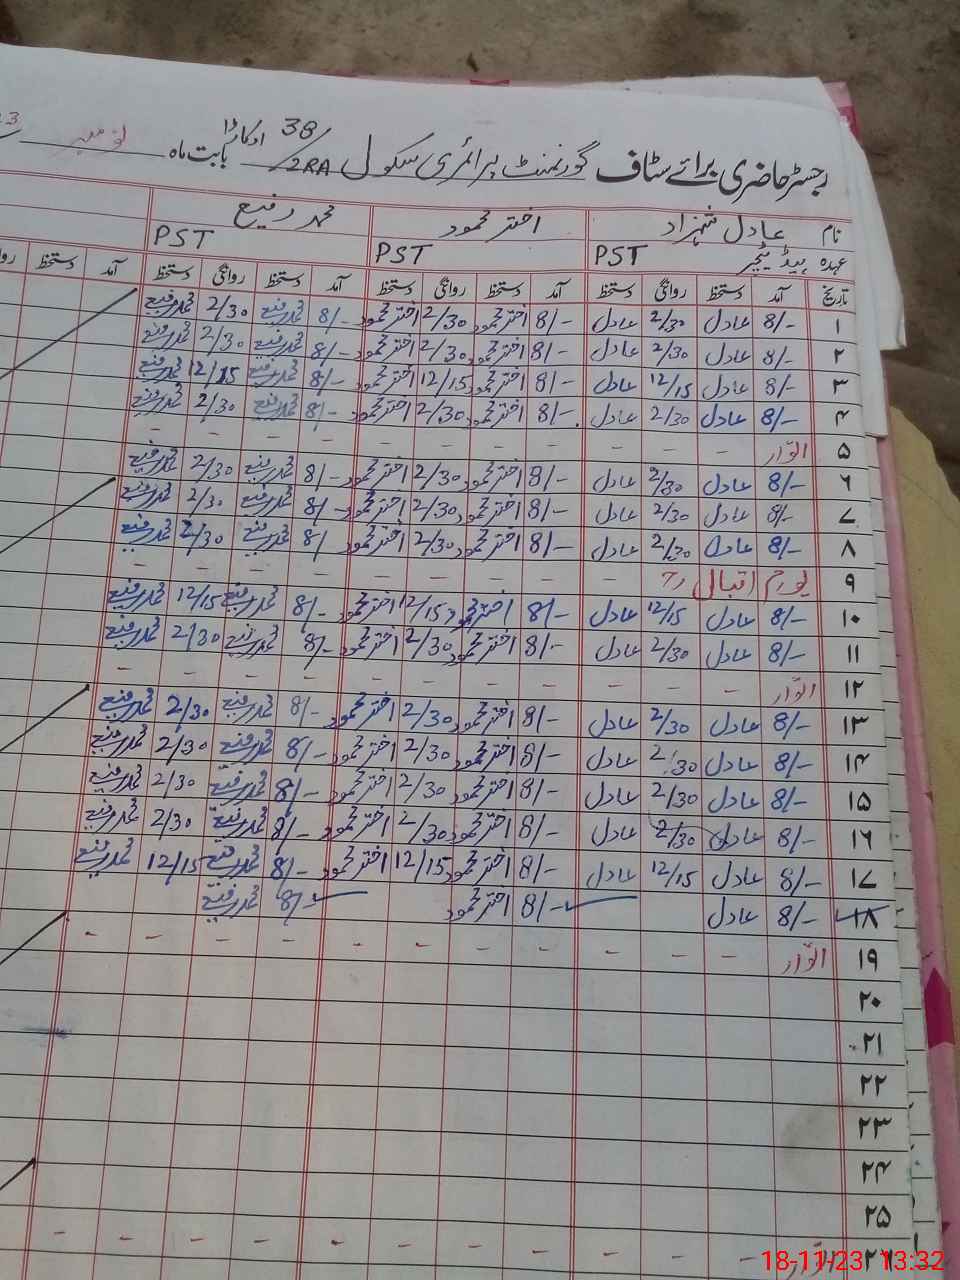 رجسٹر حاضری برائے سٹاف گورنمنٹ پرائمری سکول 38/2RA اوکاڑا بابت ماہ نومبر
نام عادل شہزاد اختر محمود محمد رفیع
عہدہ ہیڈ ٹیچر PST PST PST
تاریخ آمد دستخط روانگی دستخط آمد دستخط روانگی دستخط آمد دستخط روانگی دستخط آمد دستخط
۱ 8/- عادل 2/30 عادل 8/- اختر محمود 2/30 اختر محمود 8/- محمد رفیع 2/30 محمد رفیع
۲ 8/- عادل 2/30 عادل 8/- اختر محمود 2/30 اختر محمود 8/- محمد رفیع 2/30 محمد رفیع
۳ 8/- عادل 12/15 عادل 8/- اختر محمود 12/15 اختر محمود 8/- محمد رفیع 12/15 محمد رفیع
۴ 8/- عادل 2/30 عادل 8/- اختر محمود 2/30 اختر محمود 8/- محمد رفیع 2/30 محمد رفیع
۵ اتوار - - - - - - - - - - -
۶ 8/- عادل 2/30 عادل 8/- اختر محمود 2/30 اختر محمود 8/- محمد رفیع 2/30 محمد رفیع
۷ 8/- عادل 2/30 عادل 8/- اختر محمود 2/30 اختر محمود 8/- محمد رفیع 2/30 محمد رفیع
۸ 8/- عادل 2/30 عادل 8/- اختر محمود 2/30 اختر محمود 8/ محمد رفیع 2/30 محمد رفیع
۹ یوم اقبال - - - - - - - -
۱۰ 8/- عادل 12/15 عادل 8/- اختر محمود 12/15 اختر محمود 8/- محمد رفیع 12/15 محمد رفیع
۱۱ 8/- عادل 2/30 عادل 8/- اختر محمود 2/30 اختر محمود 8/- محمد رفیع 2/30 محمد رفیع
۱۲ اتوار - - - - - - - - - - -
۱۳ 8/- عادل 2/30 عادل 8/- اختر محمود 2/30 اختر محمود 8/- محمد رفیع 2/30 محمد رفیع
۱۴ 8/- عادل 2/30 عادل 8/- اختر محمود 2/30 اختر محمود 8/- محمد رفیع 2/30 محمد رفیع
۱۵ 8/- عادل 2/30 عادل 8/- اختر محمود 2/30 اختر محمود 8/- محمد رفیع 2/30 محمد رفیع
۱۶ 8/- عادل 2/30 عادل 8/- اختر محمود 2/30 اختر محمود 8/- محمد رفیع 2/30 محمد رفیع
۱۷ 8/- عادل 12/15 عادل 8/- اختر محمود 12/15 اختر محمود 8/- محمد رفیع 12/15 محمد رفیع
۱۸ 8/- عادل 8/- اختر محمود 8/- محمد رفیع
۱۹ اتوار - - - - - - - - - - -
۲۰
۲۱
۲۲
۲۳
۲۴
۲۵
۲۶ اتوار - - - - - - - - - - -
18-11-23 13:32